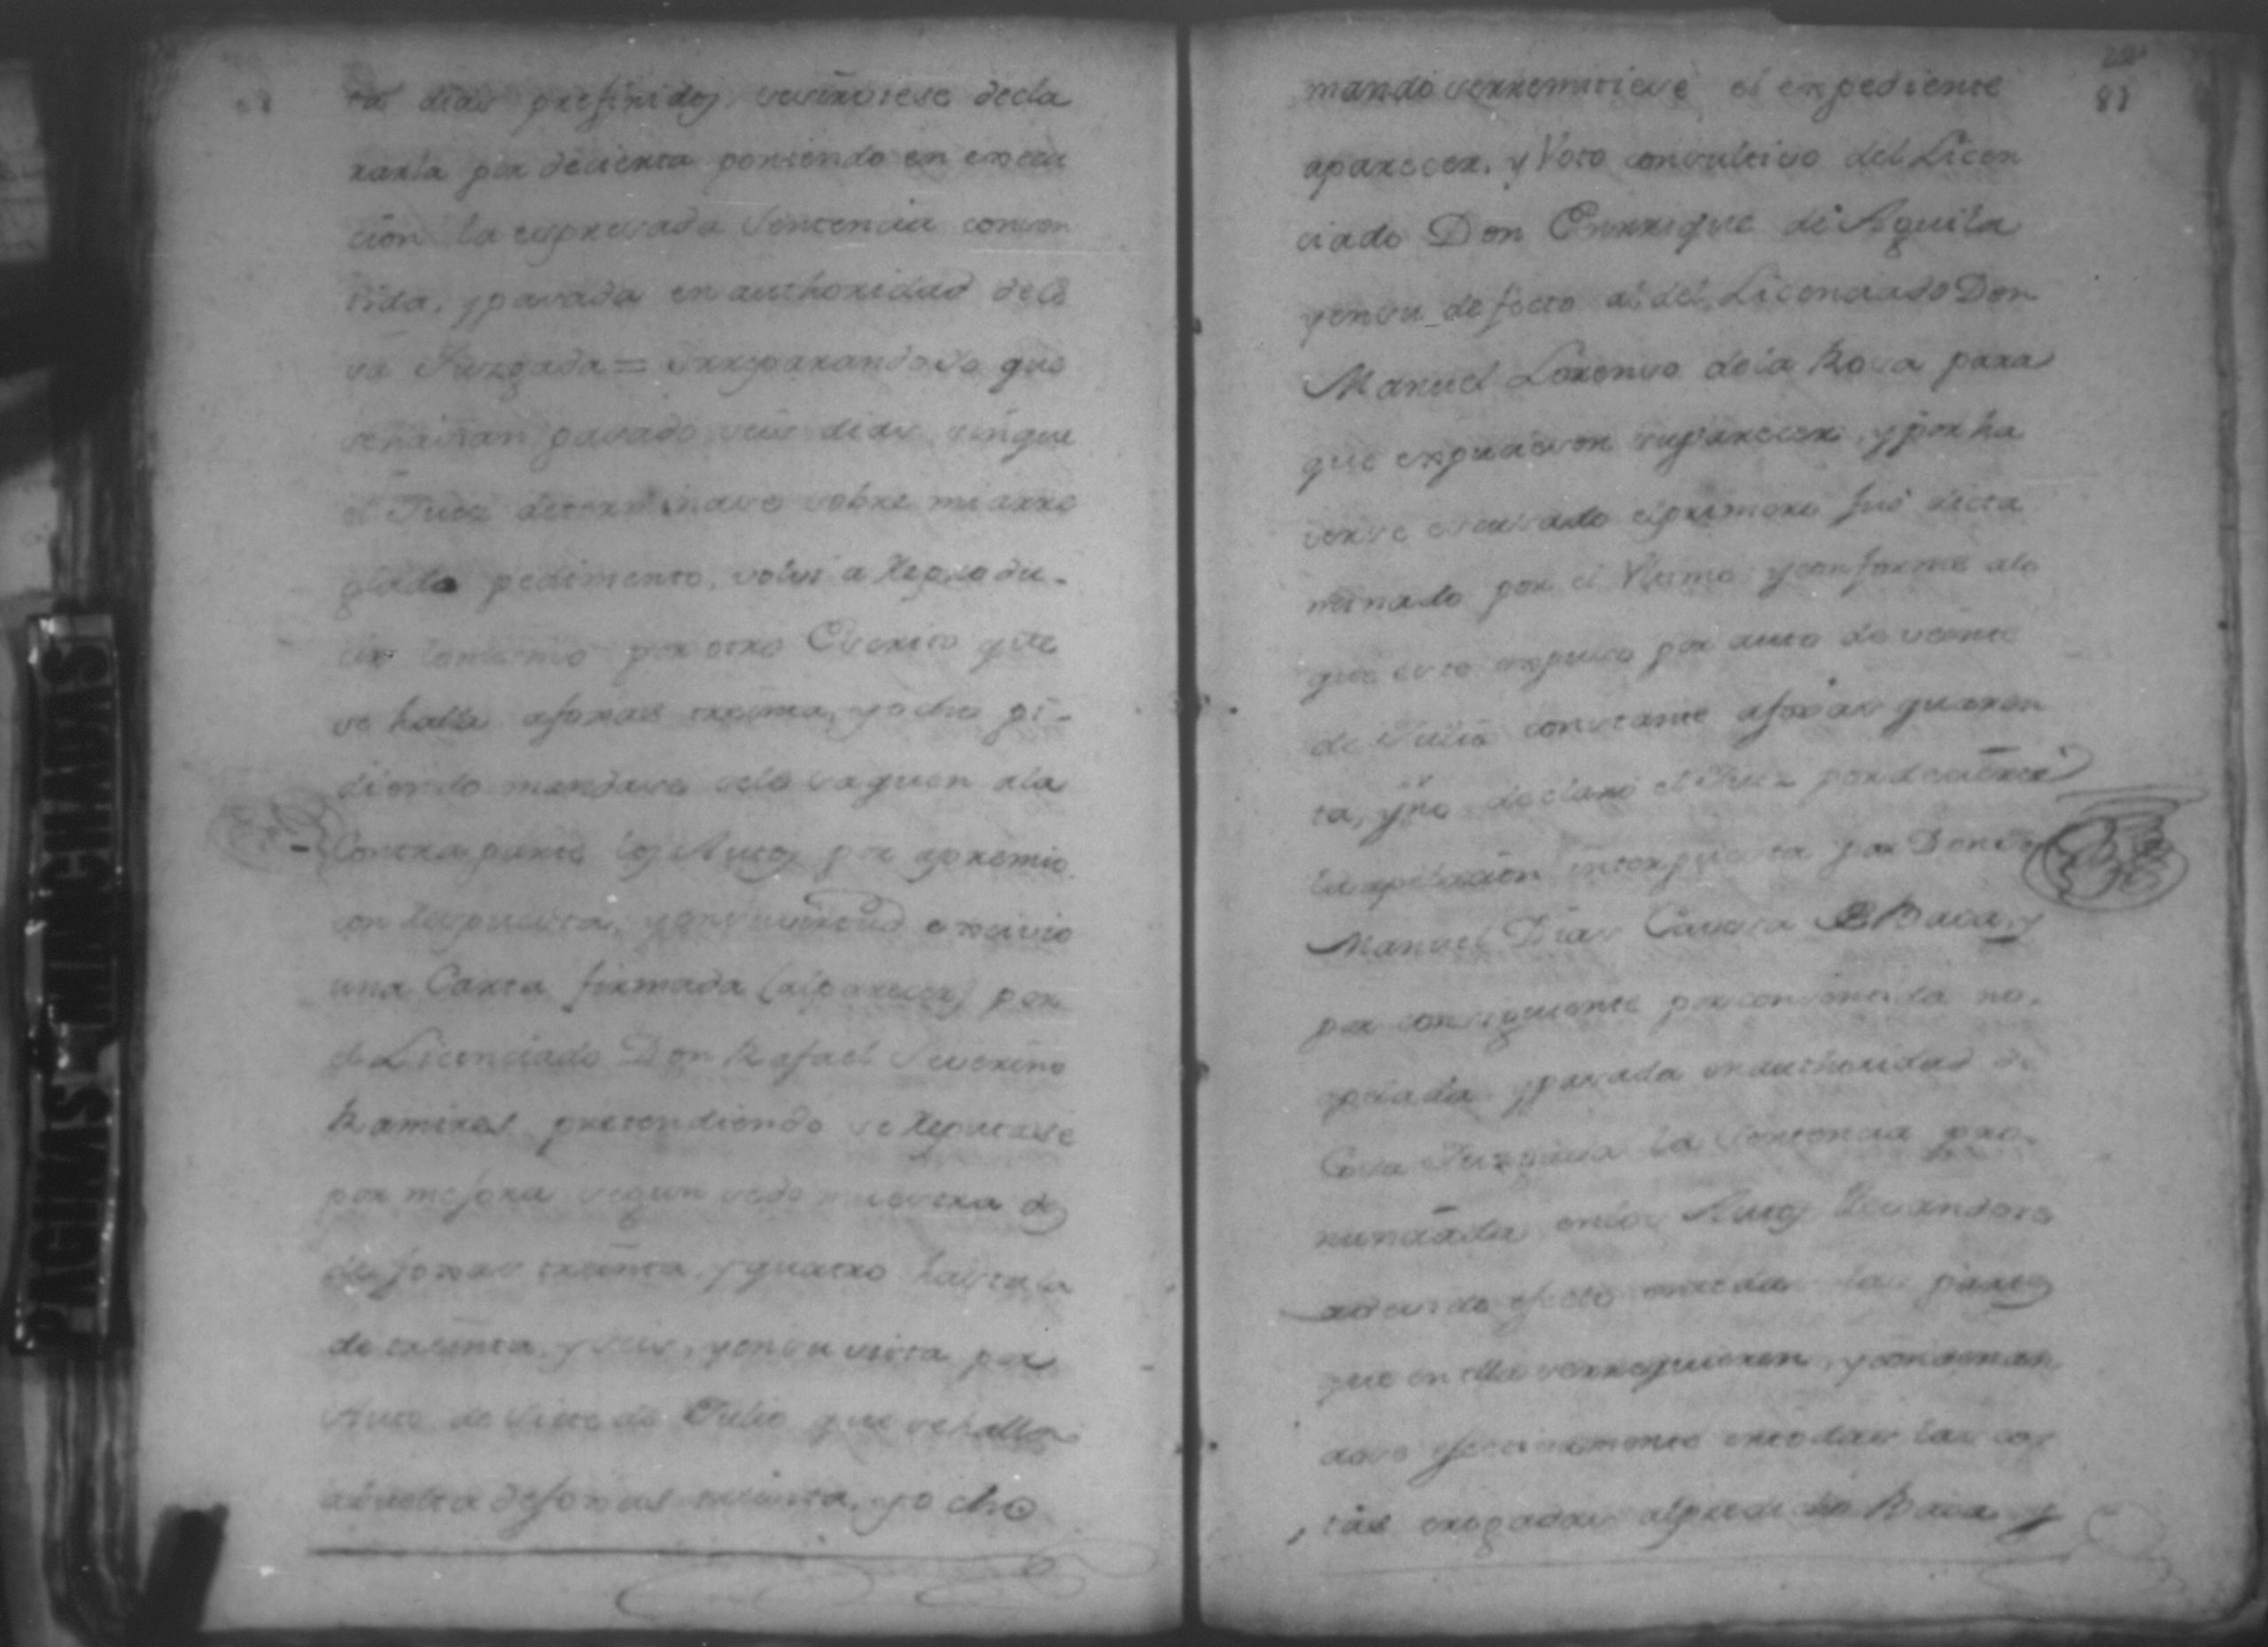 ta dias prefinidos, sesirviese decla
rarla por decierta poniendo en execu
cion la expresada Sentencia consen
tida, y pasada en authoridad de Co
sa Juzgada = irreparando se que
sehaivan pasado seis dias, sinque
el Juez determinase sobre mi arre
glado pedimento, volvi a Reprodu-
cir lomismo por otro Escrito que
se halla afoxas treinta, yocho pi-
diendo mandase sele saquen ala
Contra parte los Autos por apremio
con Respuesta, y ensuvirtud exsivio
una Carta firmada (alparecer) por
el Licenciado Don Rafael Severino
Ramires pretendiendo se Reputase
por mejora segun sede muestra de
de foxas treinta, y quatro hastala
de treinta, y seis, y ensu vista por
Auto de siete de Julio que sehalla
abuelta defoxas treinta, yocho
81
mandó serremitiese el expediente
aparecer, y Voto consultivo del Licen
ciado Don Enrrique de Aguila
yensu defecto al del Licenciado Don
Manuel Lorenso dela Rosa para
que expuciesen suparecer, y por ha
verse escusado elprimero fué dicta
minado por el Ultimo y conforme alo
que este expuso por auto de veinte
de Julio constante afoxas quaren
ta, y no declaró el Juez pordecierta
laapelacion interpuesta por Don
Manuel Dias Causca Baca, y
por consiguiente porconsentida no,
apelada, y pasada enauthoridad de
Cosa Juzgada la Sentencia pro-
nunciada enlos Autos llevandose
adevido efecto entodas las partes
que en ella serrequieren, y condenan
dose efectivamente entodas las cos
tas erogadas alpredicho Baca y